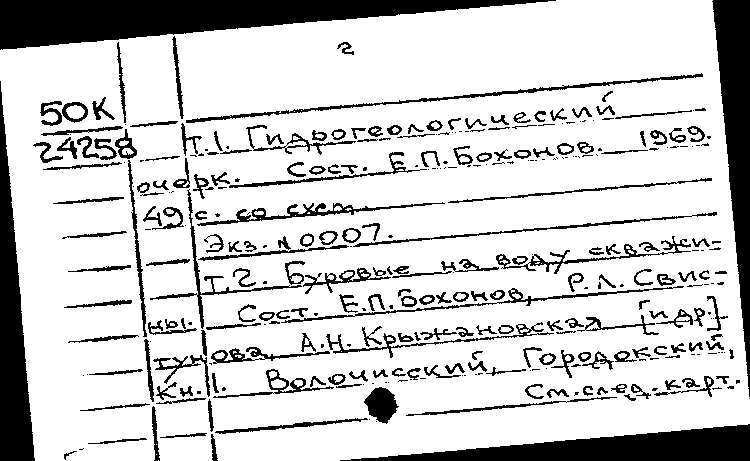 2
50К
24258
Т.1. Гидрогеологический
очерк. Сост. Е.П.Бохонов. 1969.
49 с. со схем.
Экз. №0007.
Т.2. Буровые на воду скважи-
ны. Сост. Е.П.Бохонов, Р.Л. Свис-
тунова, А.Н. Крыжановская [и др.]
Кн.1. Волочисский, Городокский,
См. след. карт.